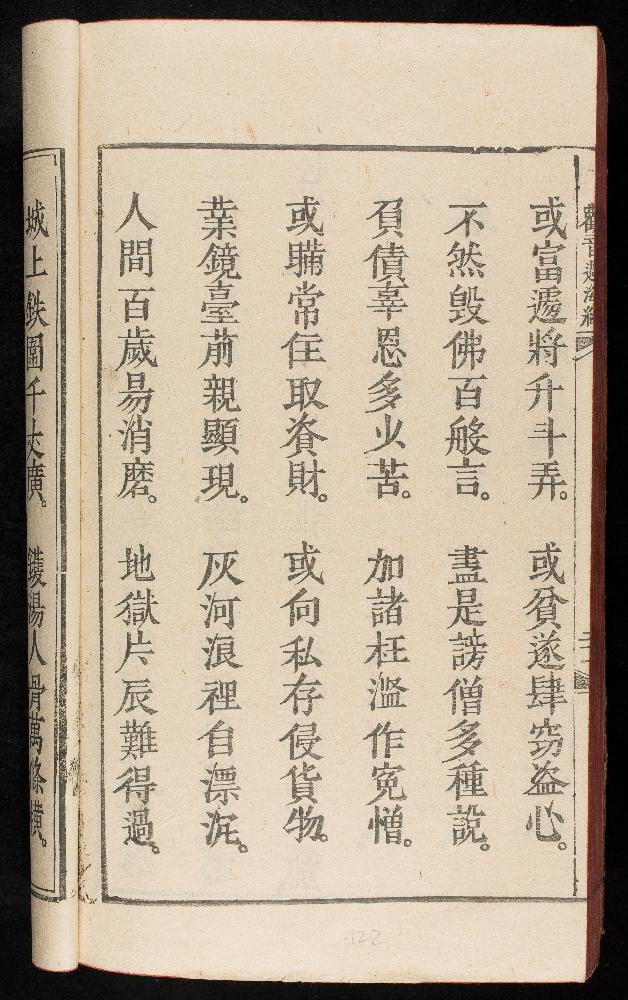 觀音過海經
或富遞將升斗弄。或貧遂肆窃盗心。
不然毀佛百般言。盡是謗僧多種說。
負債辜恩多少苦。加諸枉濫作冤憎。
或瞞常住取資財。或向私存侵貨物。
業鏡臺前親顯現。灰河浪裡自漂沱。
人間百歲易消磨。地獄片辰難得過。
城上鉄圍千丈廣。鑊湯人骨萬條橫。
122